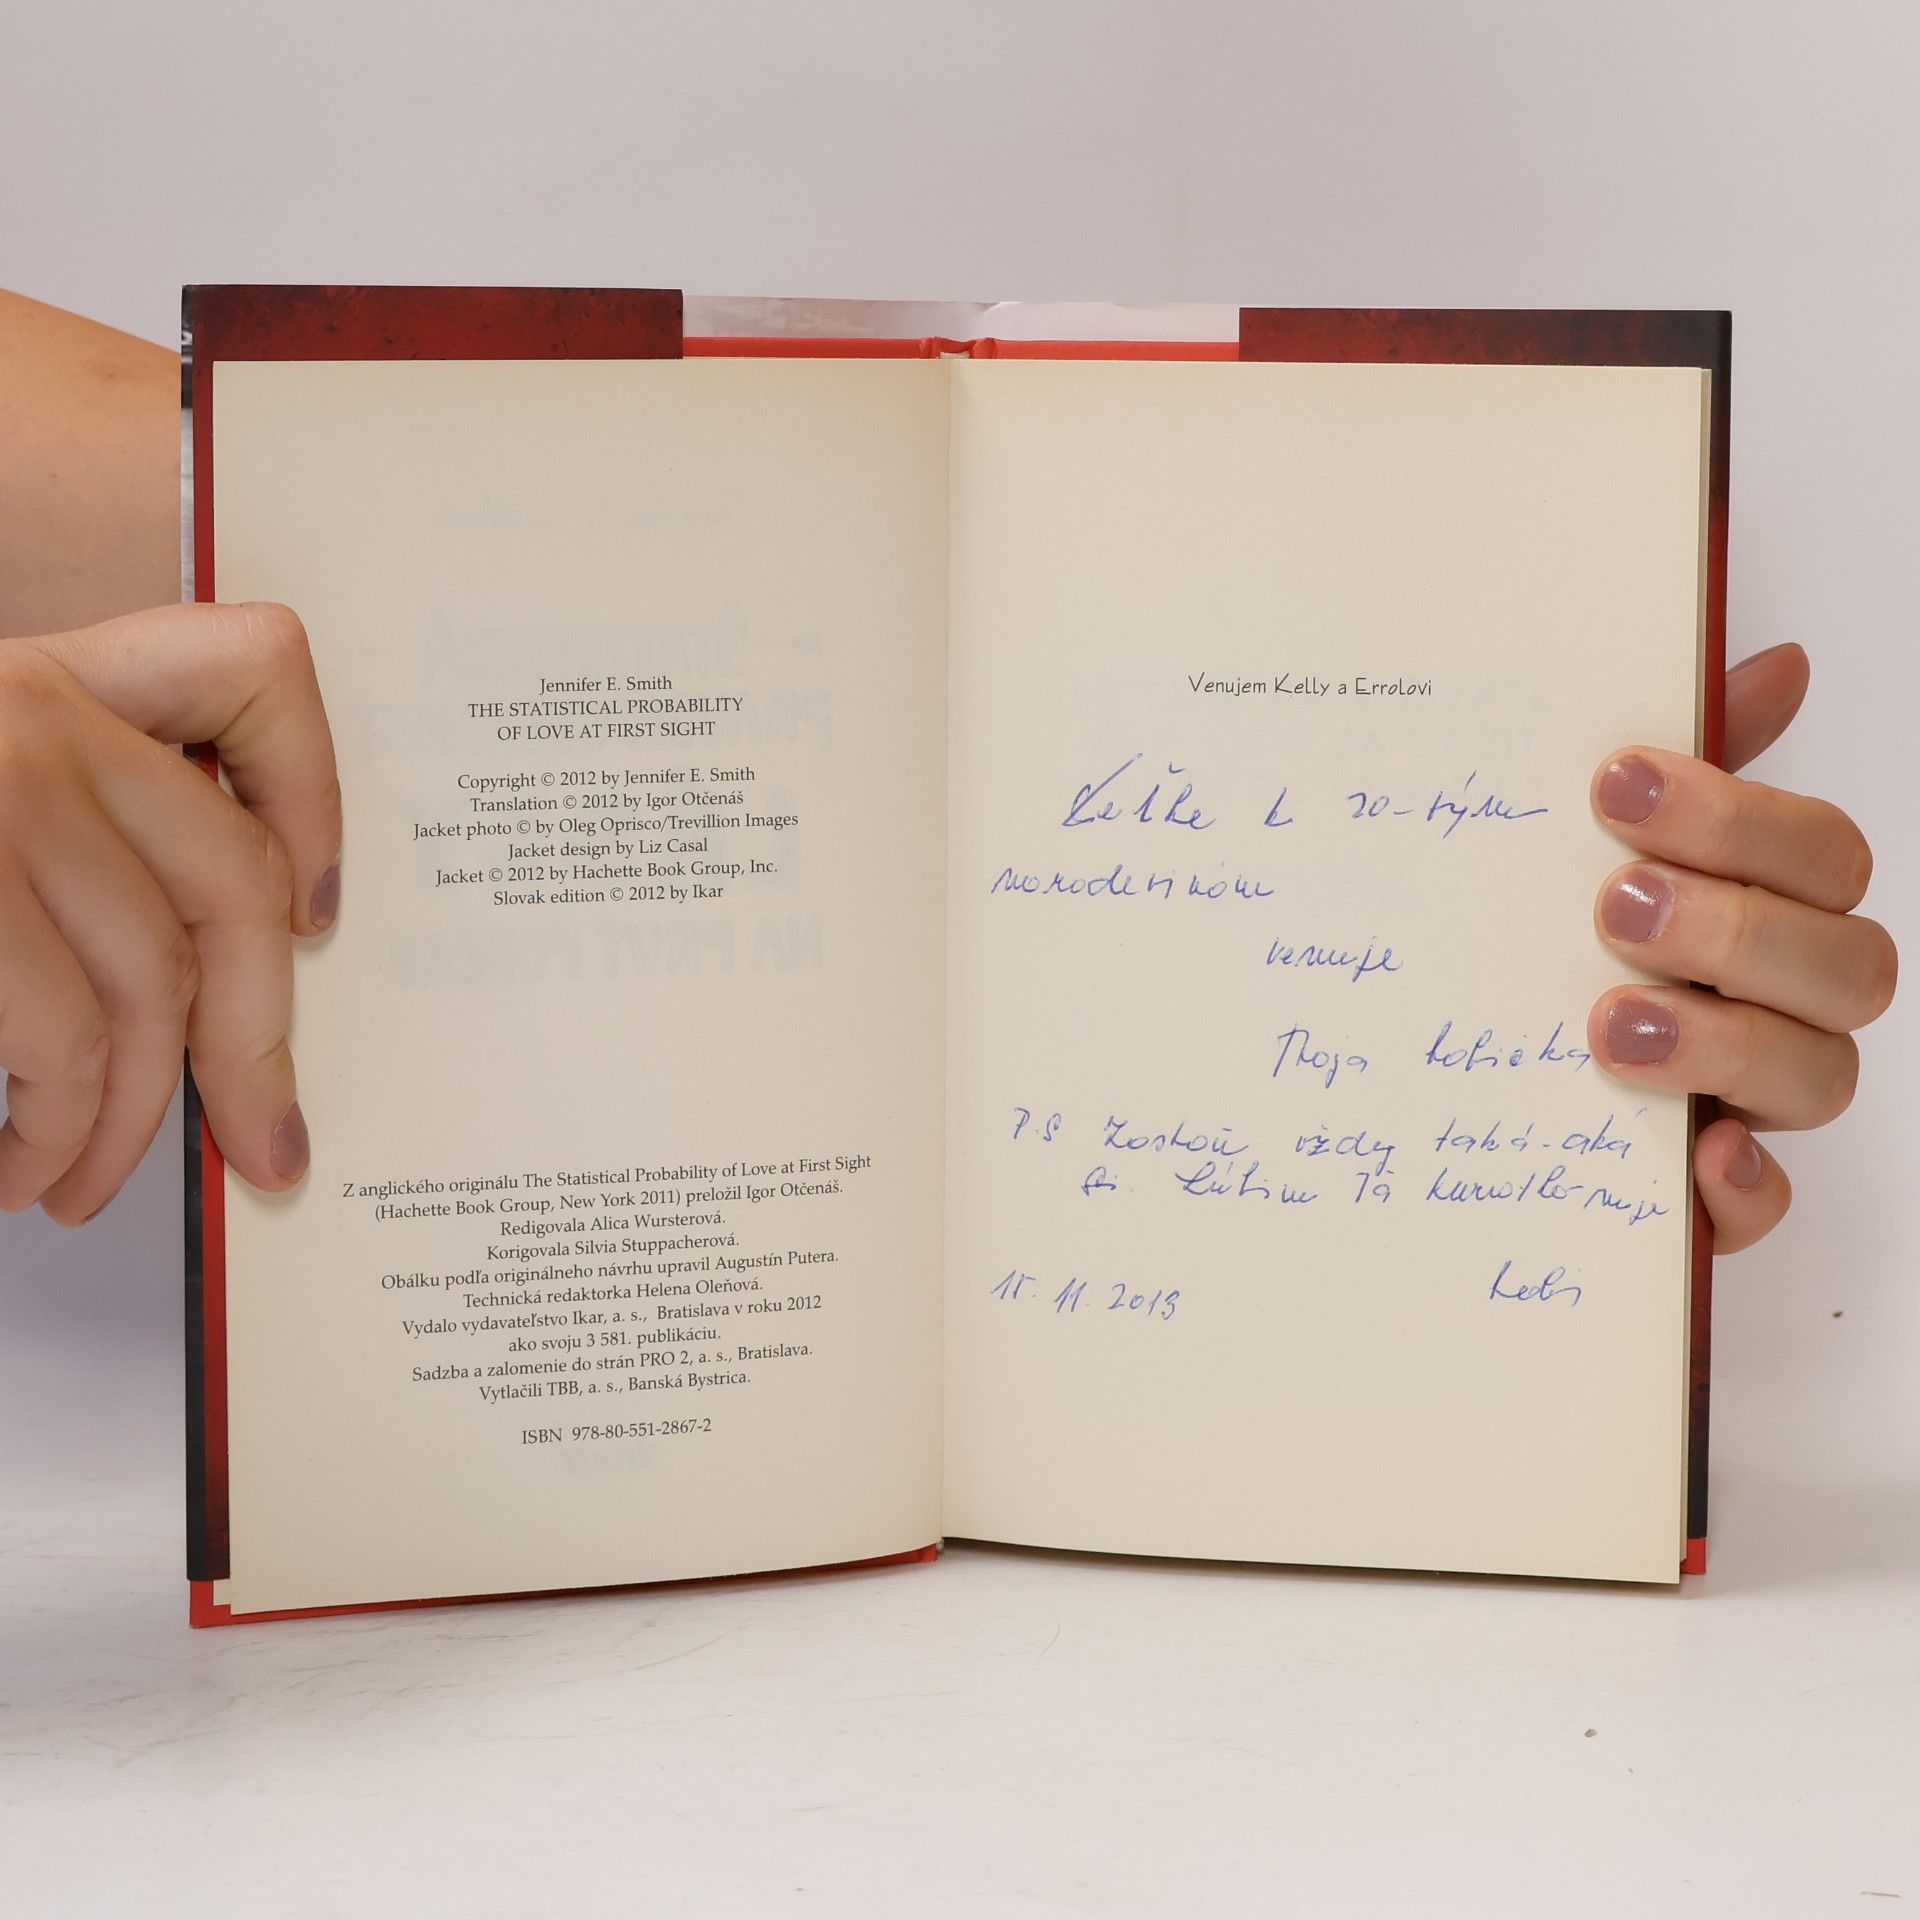 Jennifer E. Smith
THE STATISTICAL PROBABILITY
OF LOVE AT FIRST SIGHT
Copyright © 2012 by Jennifer E. Smith
Translation © 2012 by Igor Otčenáš
Jacket photo © by Oleg Oprisco/Trevillion Images
Jacket design by Liz Casal
Jacket © 2012 by Hachette Book Group, Inc.
Slovak edition © 2012 by Ikar
Z anglického originálu The Statistical Probability of Love at First Sight
(Hachette Book Group, New York 2011) preložil Igor Otčenáš.
Redigovala Alica Wursterová.
Korigovala Silvia Stuppacherová.
Obálku podľa originálneho návrhu upravil Augustín Putera.
Technická redaktorka Helena Oleňová.
Vydalo vydavateľstvo Ikar, a. s., Bratislava v roku 2012
ako svoju 3 581. publikáciu.
Sadzba a zalomenie do strán PRO 2, a. s., Bratislava.
Vytlačili TBB, a. s., Banská Bystrica.
ISBN 978-80-551-2867-2
Venujem Kelly a Errolovi
k 20-tým
narodeninám
venuje
Tvoja
P.S Zostaň vždy taká-aká
si. Ľúbim Ťa
15. 11. 2013